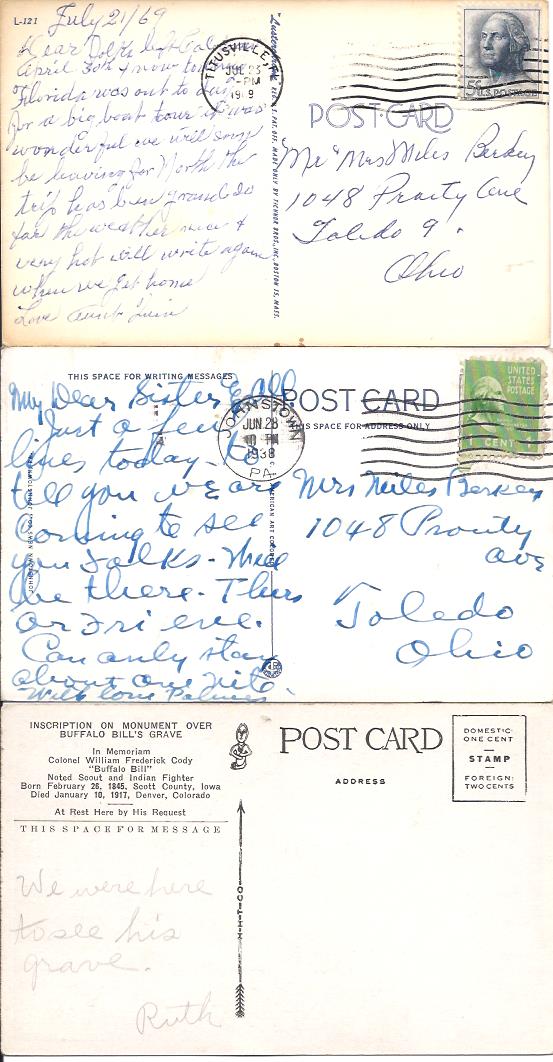 L-121 July 21/69
Dear Folks left
April 30th & now
Florida was out to day
for a big boat tour it was
wonderful we will soon
be leaving for North the
trip has been grand so
far the weather now &
very hot will write again
when we get home
Love Aunt
TITUSVILLE, FL
JUL 23
PM
"Lusterchrome" REG. U.S. PAT. OFF. MADE ONLY BY TICHNOR BROS., INC., BOSTON 15, MASS.
5c U.S. POSTAGE
POST CARD
Mr & Mrs Miles Berkey
1048 Prouty Ave
Toledo 9.
Ohio
THIS SPACE FOR WRITING MESSAGES
My Dear Sister & all
Just a few
lines today to
tell you we are
coming to see
you folks -
be there - Thurs
or Fri eve.
Can only stay
about one nite.
With love
JOHNSTOWN
JUN 28
PM
1938
PA.
POST CARD
THIS SPACE FOR ADDRESS ONLY
UNITED STATES POSTAGE
1 CENT 1
Mrs Miles Berkey
1048 Prouty
ave
Toledo
Ohio
INSCRIPTION ON MONUMENT OVER
BUFFALO BILL'S GRAVE
In Memoriam
Colonel William Frederick Cody
"Buffalo Bill"
Noted Scout and Indian Fighter
Born February 26, 1845, Scott County, Iowa
Died January 10, 1917, Denver, Colorado
At Rest Here by His Request
THIS SPACE FOR MESSAGE
We were here
to see his
grave.
Ruth
H-H-T-CO.
POST CARD
ADDRESS
DOMESTIC
ONE CENT
STAMP
FOREIGN:
TWO CENTS